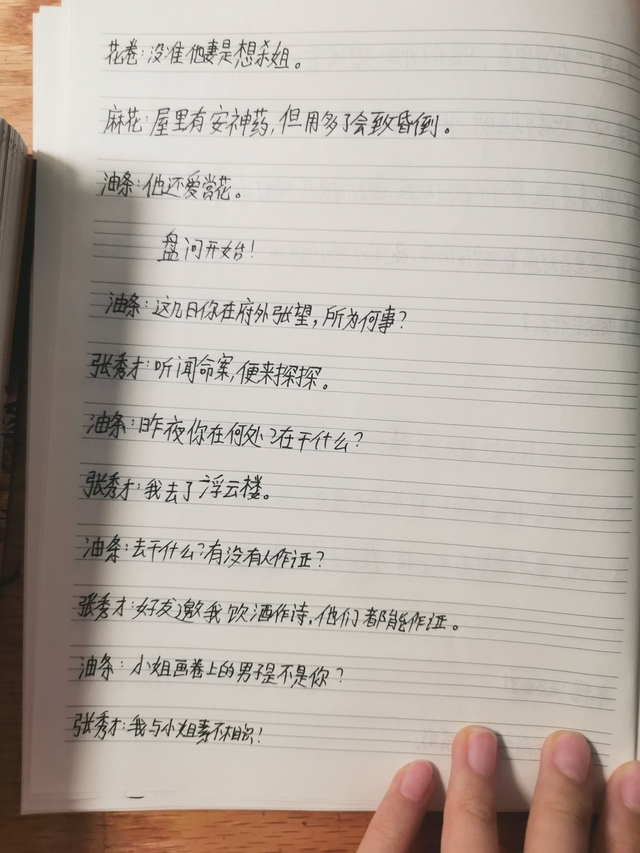 花卷：没准他妻是想杀姐。
麻花：屋里有安神药，但用多了会致昏倒。
油条：他还爱赏花。
盘问开始！
油条：这几日你在府外张望，所为何事？
张秀才：听闻命案，便来探探。
油条：昨夜你在何处？在干什么？
张秀才：我去了浮云楼。
油条：去干什么？有没有人作证？
张秀才：好友邀我饮酒作诗，他们都能作证。
油条：小姐画卷上的男子是不是你？
张秀才：我与小姐素不相识！